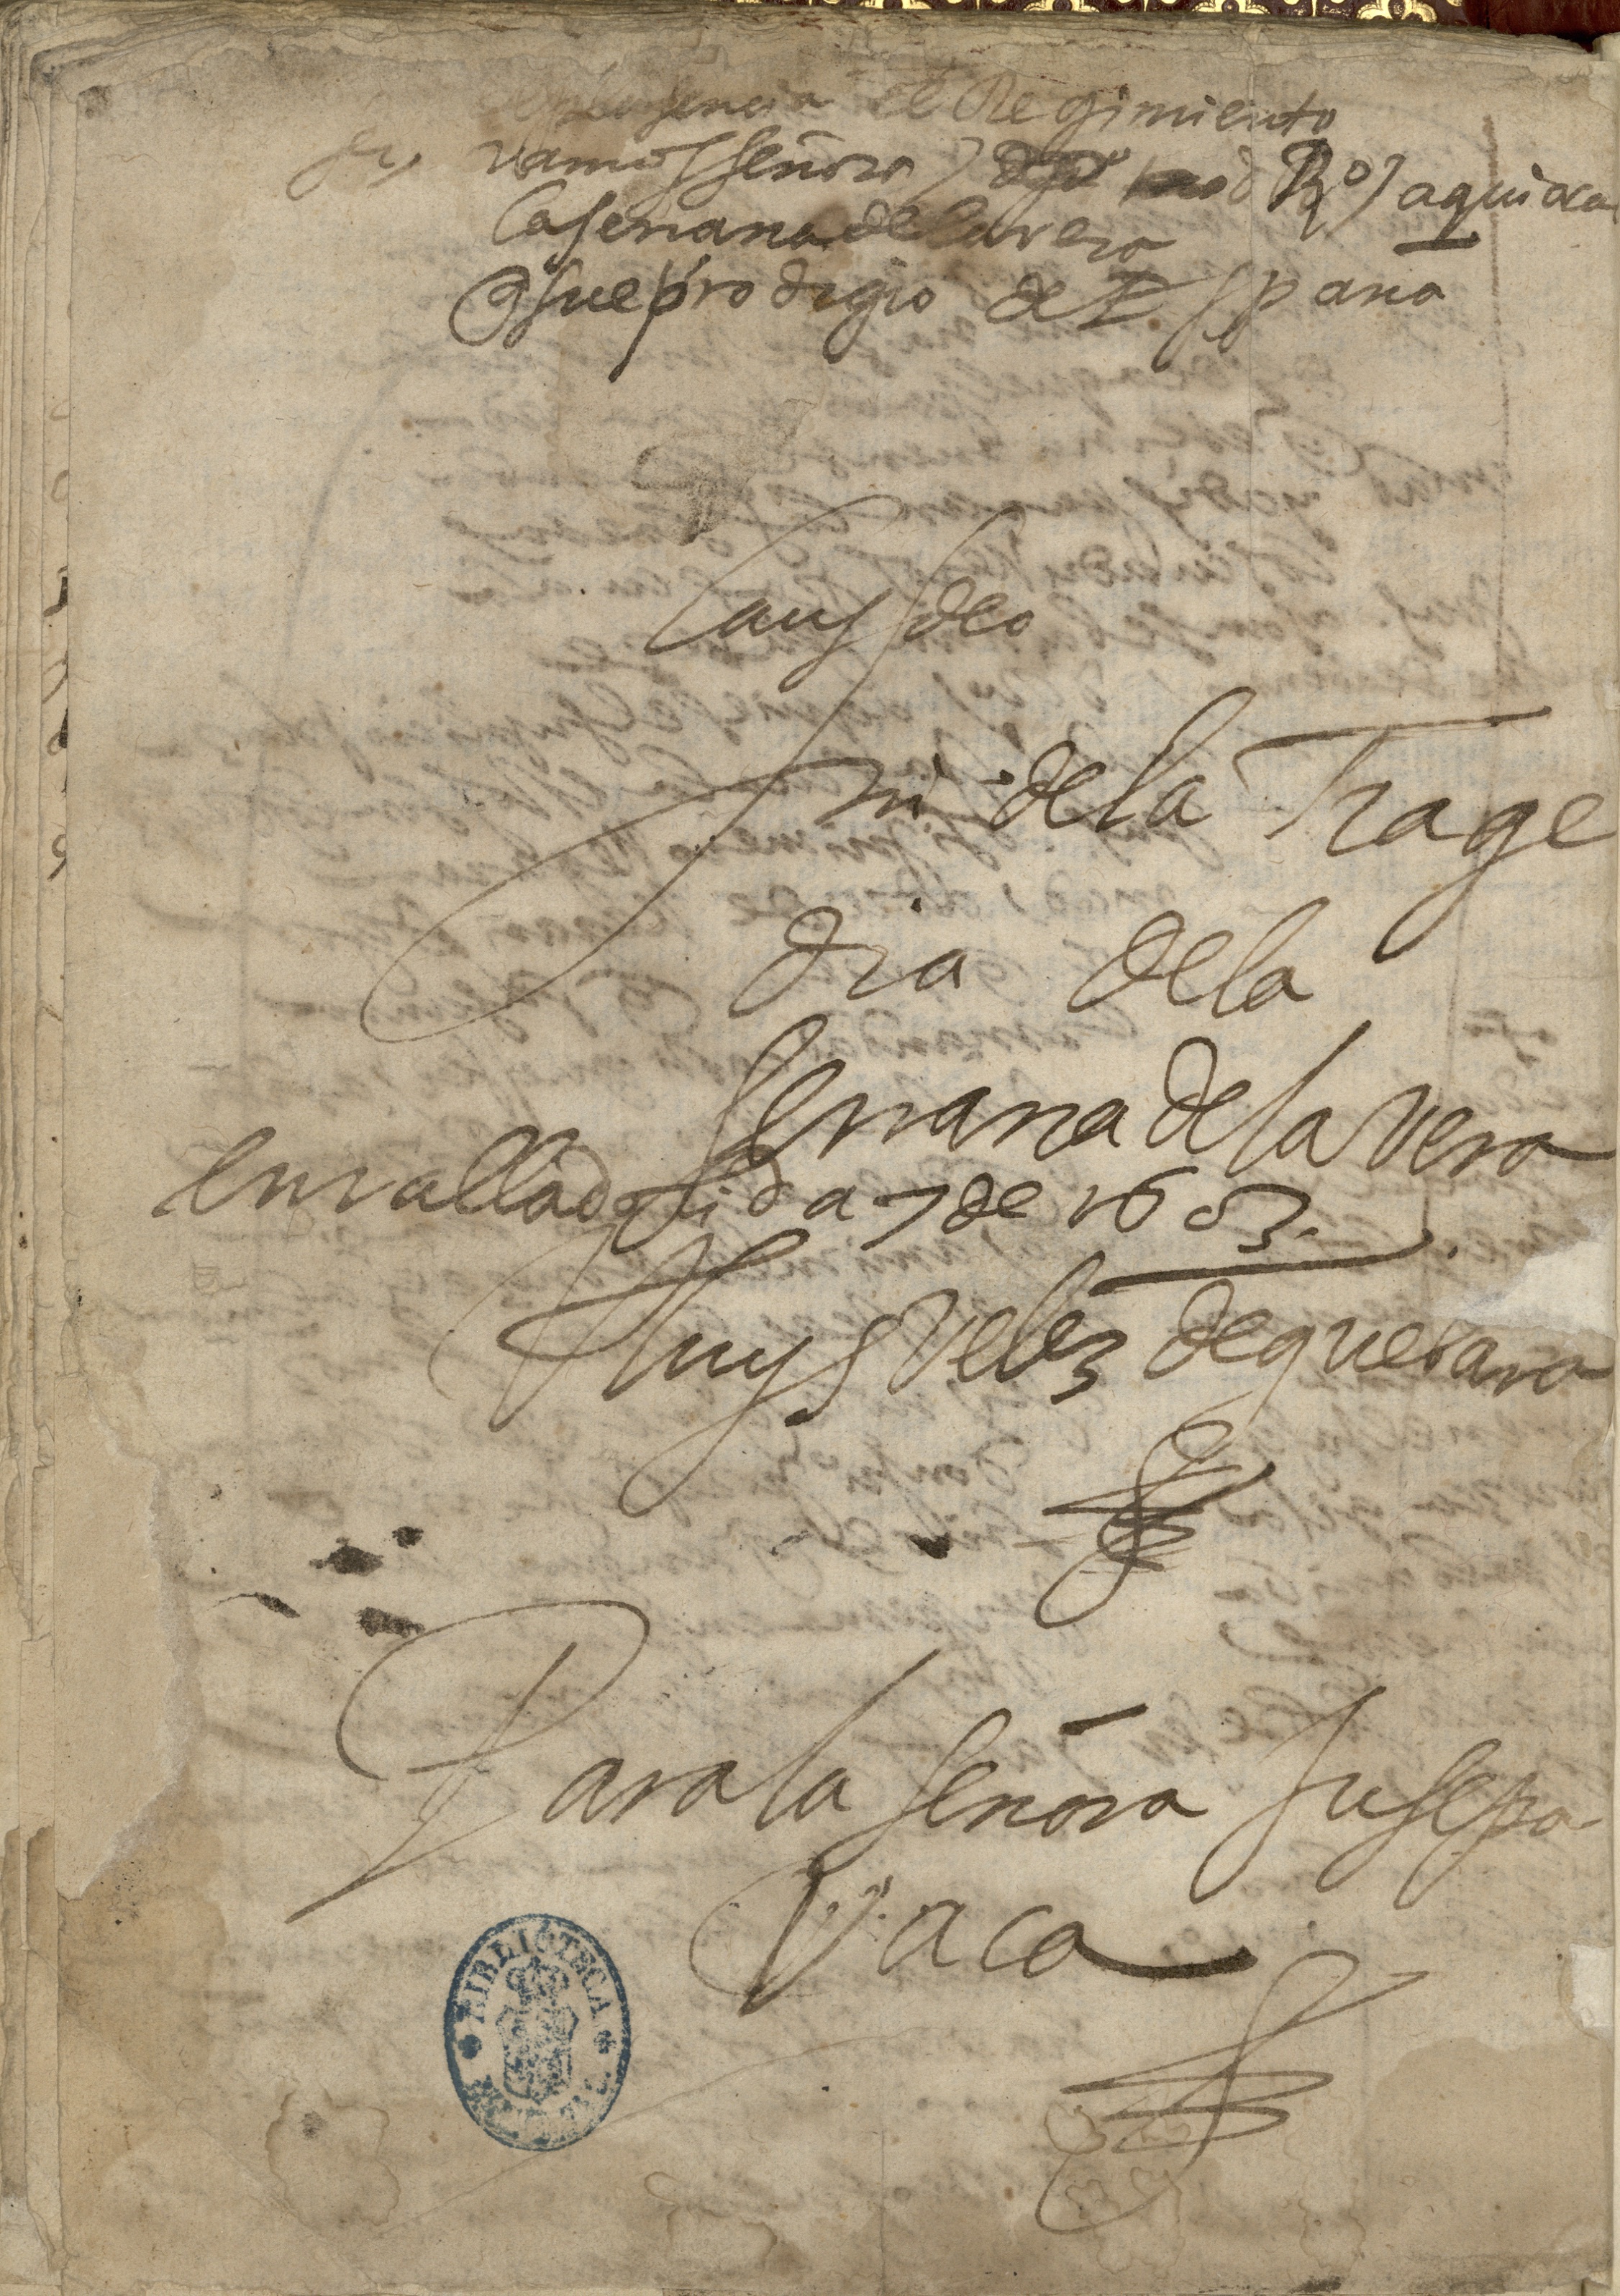 el Regimiento
vamos señora) Ro) aquí aca
la serrana de la vera
q fue prodigio de España
Laus deo
Fin de la Trage
dia de la
serrana de la Vera
en valladolid a 7 de 1603.
Luys Velez de guebara
Para la señora Jusepa
Vaca
BIBLIOTECA